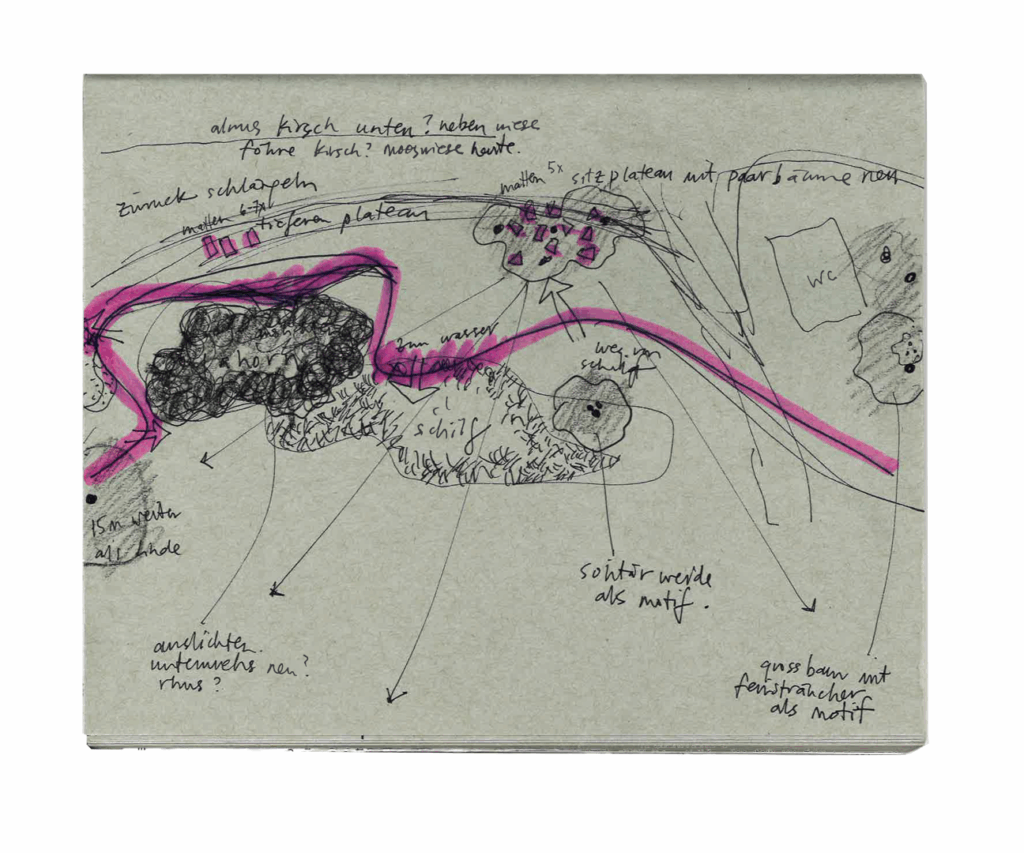 alnus kirsch unten? neben wiese
föhre kirsch? mooswiese heute.
zurück schlängeln
matten 6-7x
tieferen plateau
matten 5x
sitzplateau mit paar bäume neu
WC
zum wasser
weg von
schilf
ahorn
schilf
15m weiter
als
solitär weide
als motif.
auslichten.
neu?
rhus?
grossbaum mit
als motif